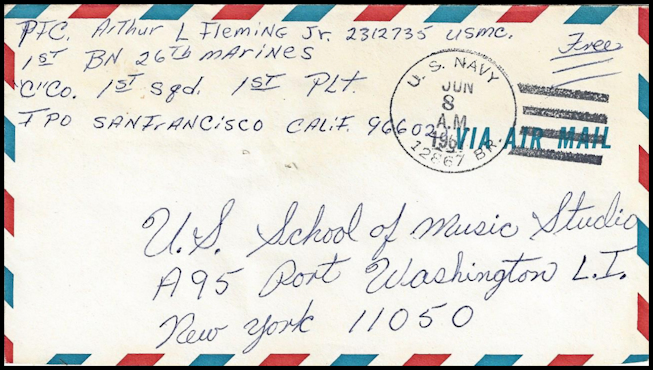 PFC. Arthur L Fleming Jr. 2312735 USMC.
1ST BN 26Tb MARINES
"C" Co. 1ST Sqd. 1ST PLT.
FPO SANFRANCISCO CALIF. 96602
Free
U.S. NAVY
JUN
8
A.M
12867 BR.
VIA AIR MAIL
U.S. School of Music Studio
A95 Port Washington L.I.
New York 11050